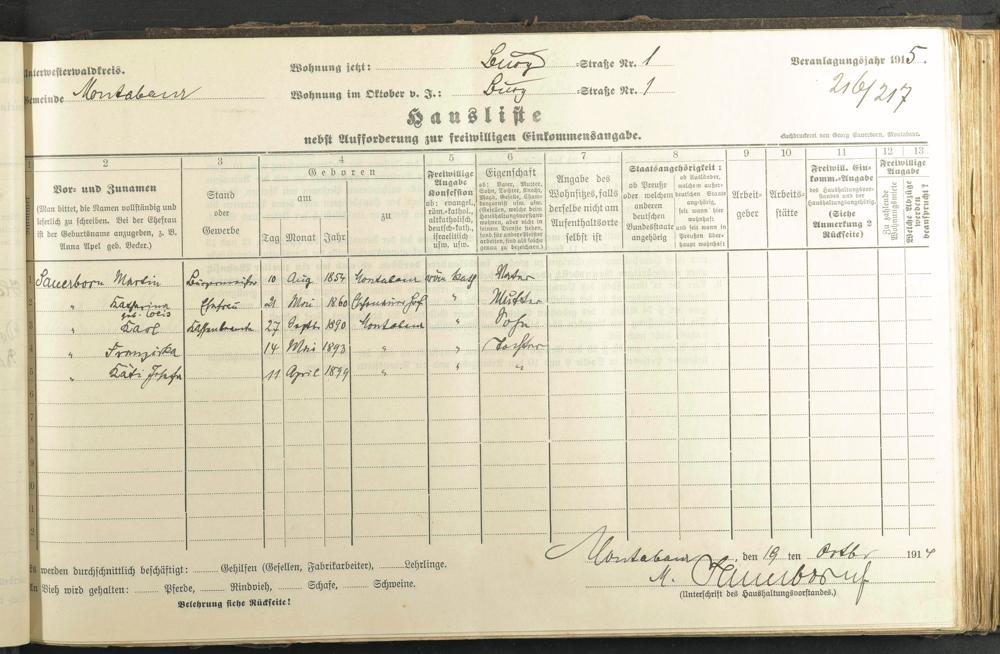 Unterwesterwaldkreis.
Wohnung jetzt: Burg =Straße Nr. 1
Veranlagungsjahr 1915.
Gemeinde Montabaur
Wohnung im Oktober v. J.: Burg =Straße Nr. 1
216/217
Hausliste
nebst Aufforderung zur freiwilligen Einkommensangabe.
Buchdruckerei von Georg Sauerborn, Montabaur.
2 3 4 5 6 7 8 9 10 11 12 13
Vor- und Zunamen
(Man bittet, die Namen vollständig und
leserlich zu schreiben. Bei der Ehefrau
ist der Geburtsname anzugeben, z. B.
Anna Apel geb. Becker.)
Stand
oder
Gewerbe
Geboren
am
zu
Tag Monat Jahr
Freiwillige
Angabe
Konfession
ob: evangel.,
röm.-kathol.,
altkatholisch,
deutsch-kath.,
israelitisch
usw. usw.
Eigenschaft
ob: Vater, Mutter,
Sohn, Tochter, Knecht,
Magd, Geselle,
Angabe des
Wohnsitzes, falls
derselbe nicht am
Aufenthaltsorte
selbst ist
Staatsangehörigkeit:
ob Preuße
oder welchem
anderen
deutschen
Bundesstaate
angehörig
ob Ausländer,
welchem außer-
deutschen Staate
angehörig,
seit wann hier
wohnhaft
und seit wann in
Preußen über-
haupt wohnhaft
Arbeit-
geber
Arbeits-
stätte
Freiwill. Ein-
komm.-Angabe
des Haushaltungsvor-
standes und der
Haushaltungsangehörig.
(Siehe
Anmerkung 2
Rückseite)
Freiwillige
Angabe
Zu zahlende
Wohnungsmiete
Welche Abzüge
werden
beansprucht?
1 Sauerborn Martin 10 Aug 1854 Montabaur röm kath Vater
2 " Katharina Ehefrau 21 Mai 1860 " Mutter
3 " Karl 27 Septb 1890 Montabaur " Sohn
4 " Franziska 14 Mai 1893 " " Tochter
5 " Käti Josefa 11 April 1899 " " "
6
7
8
9
Es werden durchschnittlich beschäftigt: Gehilfen (Gesellen, Fabrikarbeiter), Lehrlinge.
An Vieh wird gehalten: Pferde, Rindvieh, Schafe, Schweine.
Belehrung siehe Rückseite!
Montabaur, den 19 ten Octbr 1914
M. Sauerborn
(Unterschrift des Haushaltungsvorstandes.)